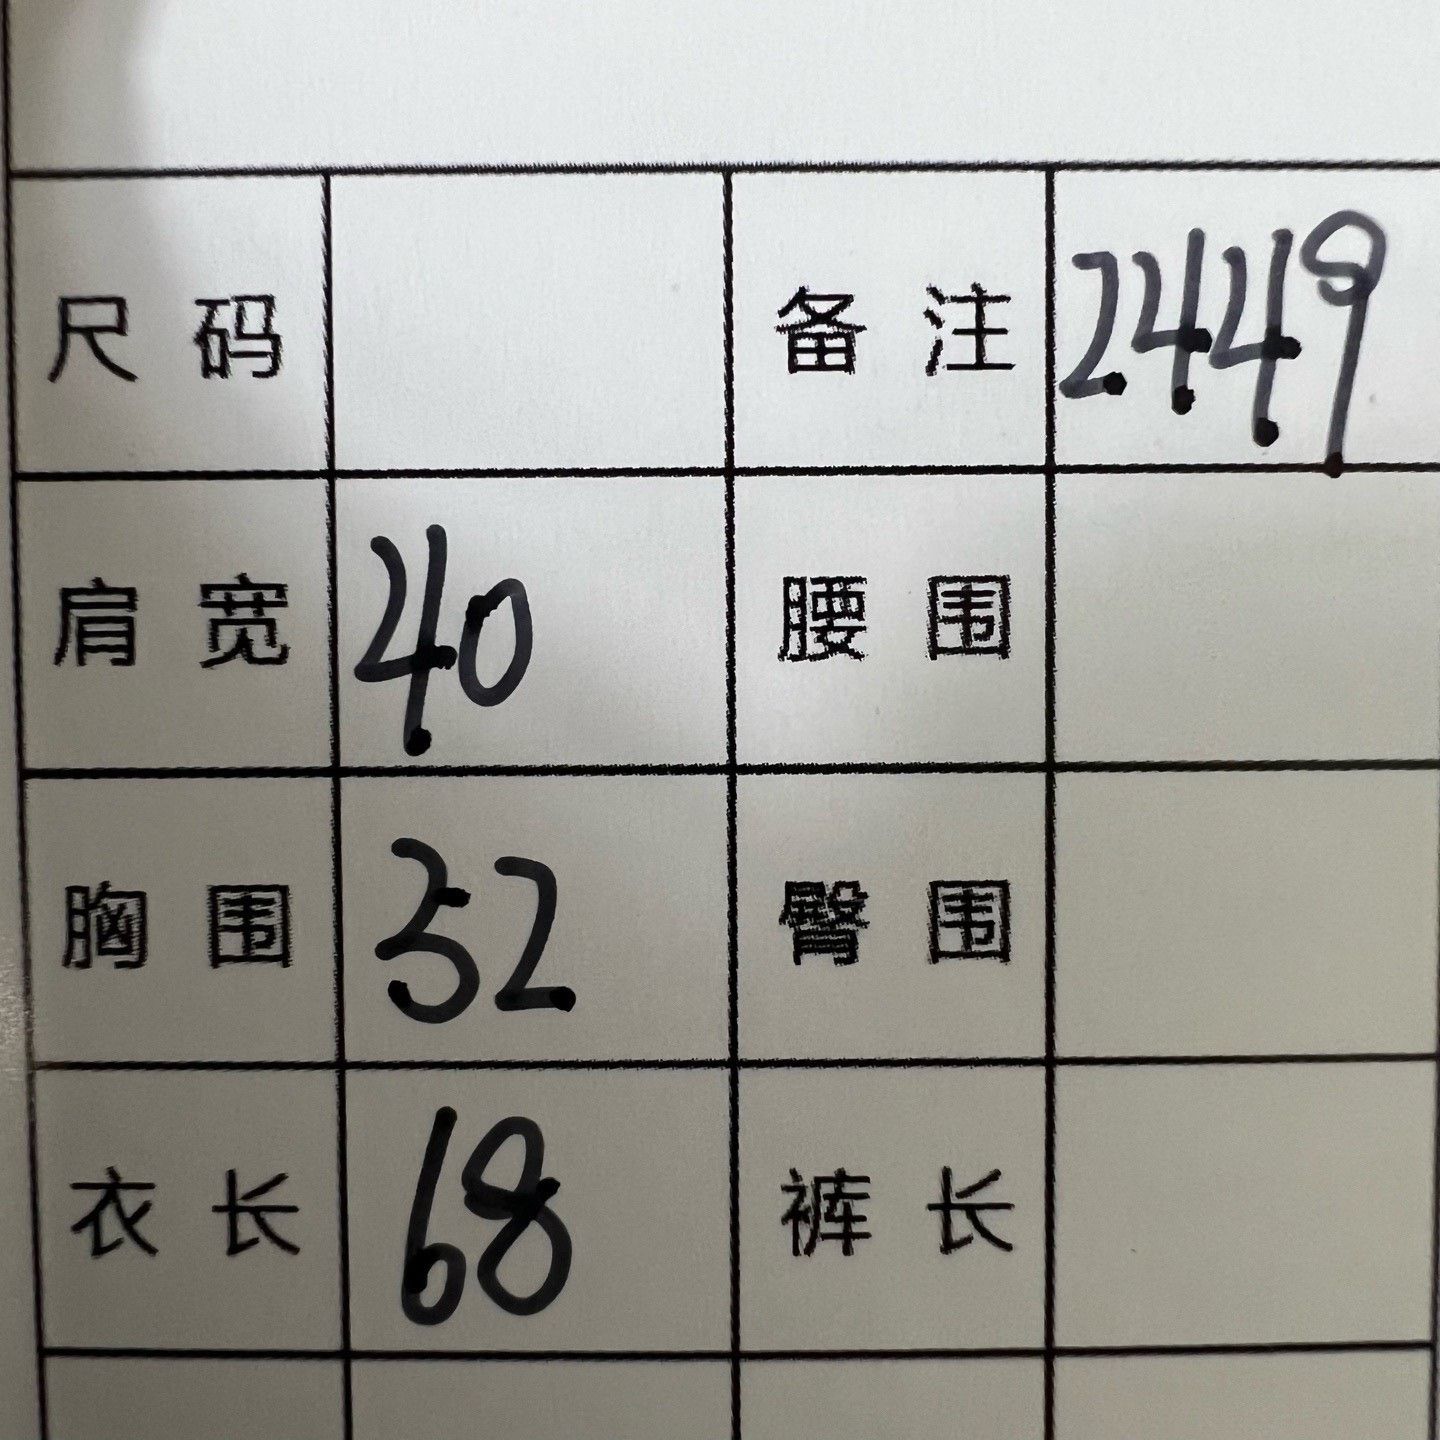 尺码 备注 2449
肩宽 40 腰围
胸围 52 臀围
衣长 68 裤长